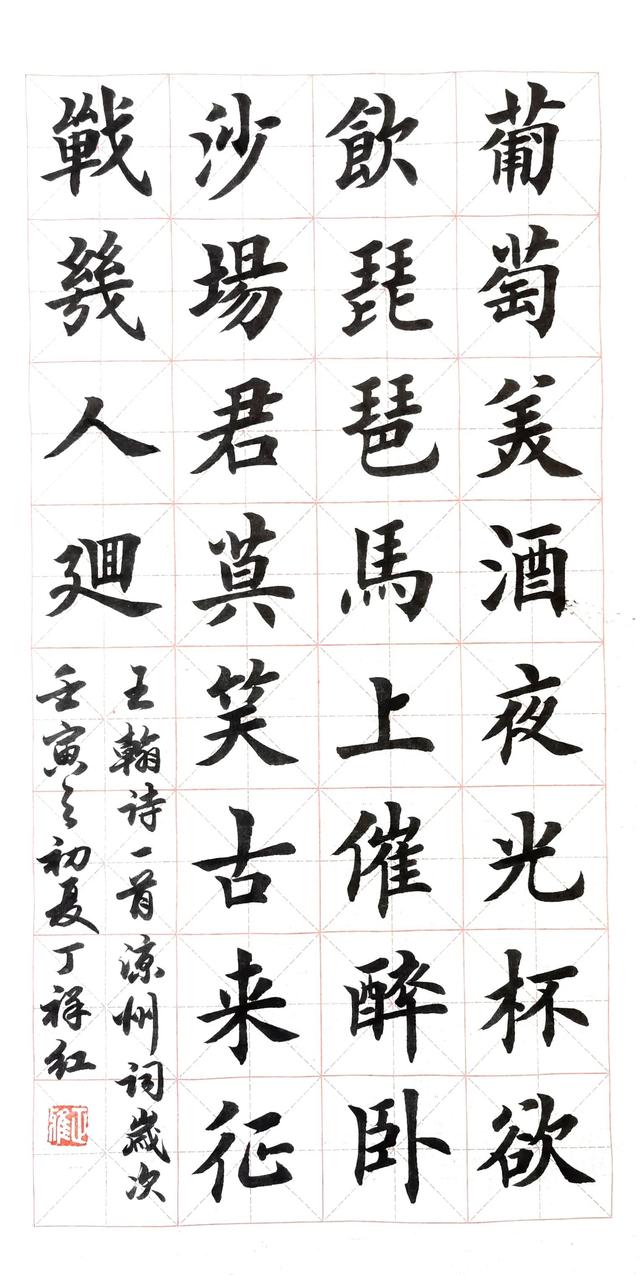 葡萄美酒夜光杯欲
飲琵琶馬上催醉卧
沙場君莫笑古来征
戰幾人廻
王翰诗一首涼州词歲次
壬寅之初夏丁祥红